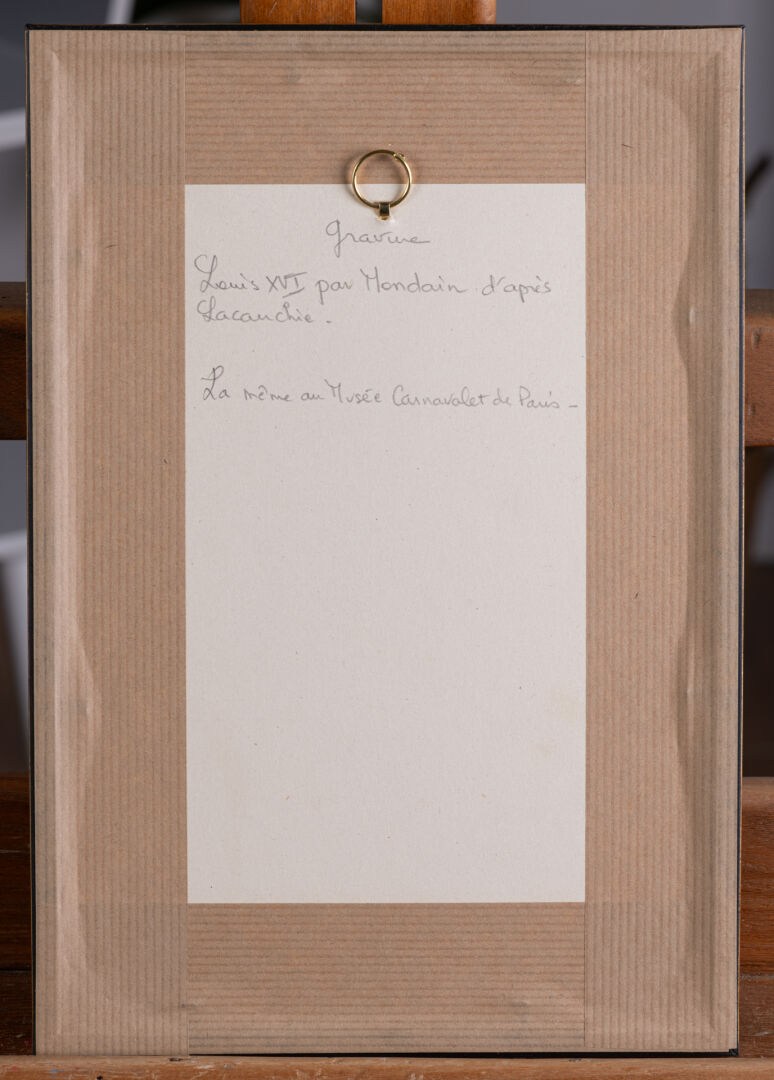 gravure
Louis XVI par Mondain d'après
Lacauchie.
La même au Musée Carnavalet de Paris-